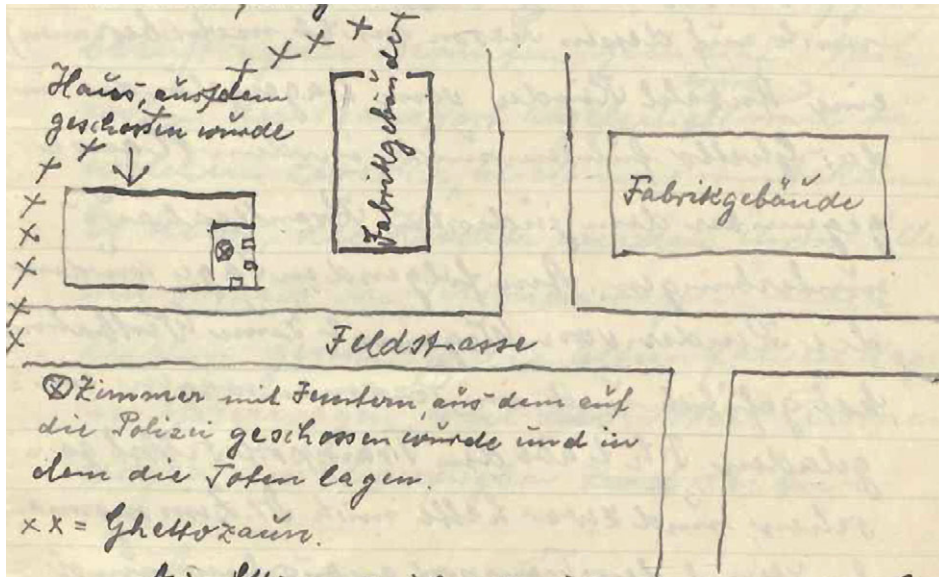 Haus, aus dem
geschossen wurde
Fabrikgebäude
Fabrikgebäude
Feldstrasse
Zimmer mit Fenstern, aus dem auf
die Polizei geschossen wurde und in
dem die Toten lagen.
xx = Ghettozaun.